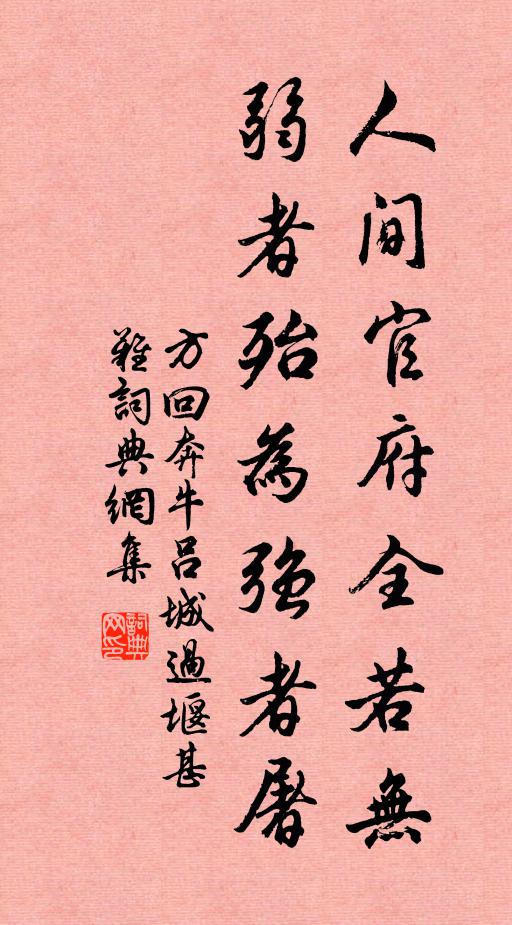 人間官府全若無
弱者殆為強者屠
方回奔牛呂城過堰甚
難詞典網集
詞典
网印